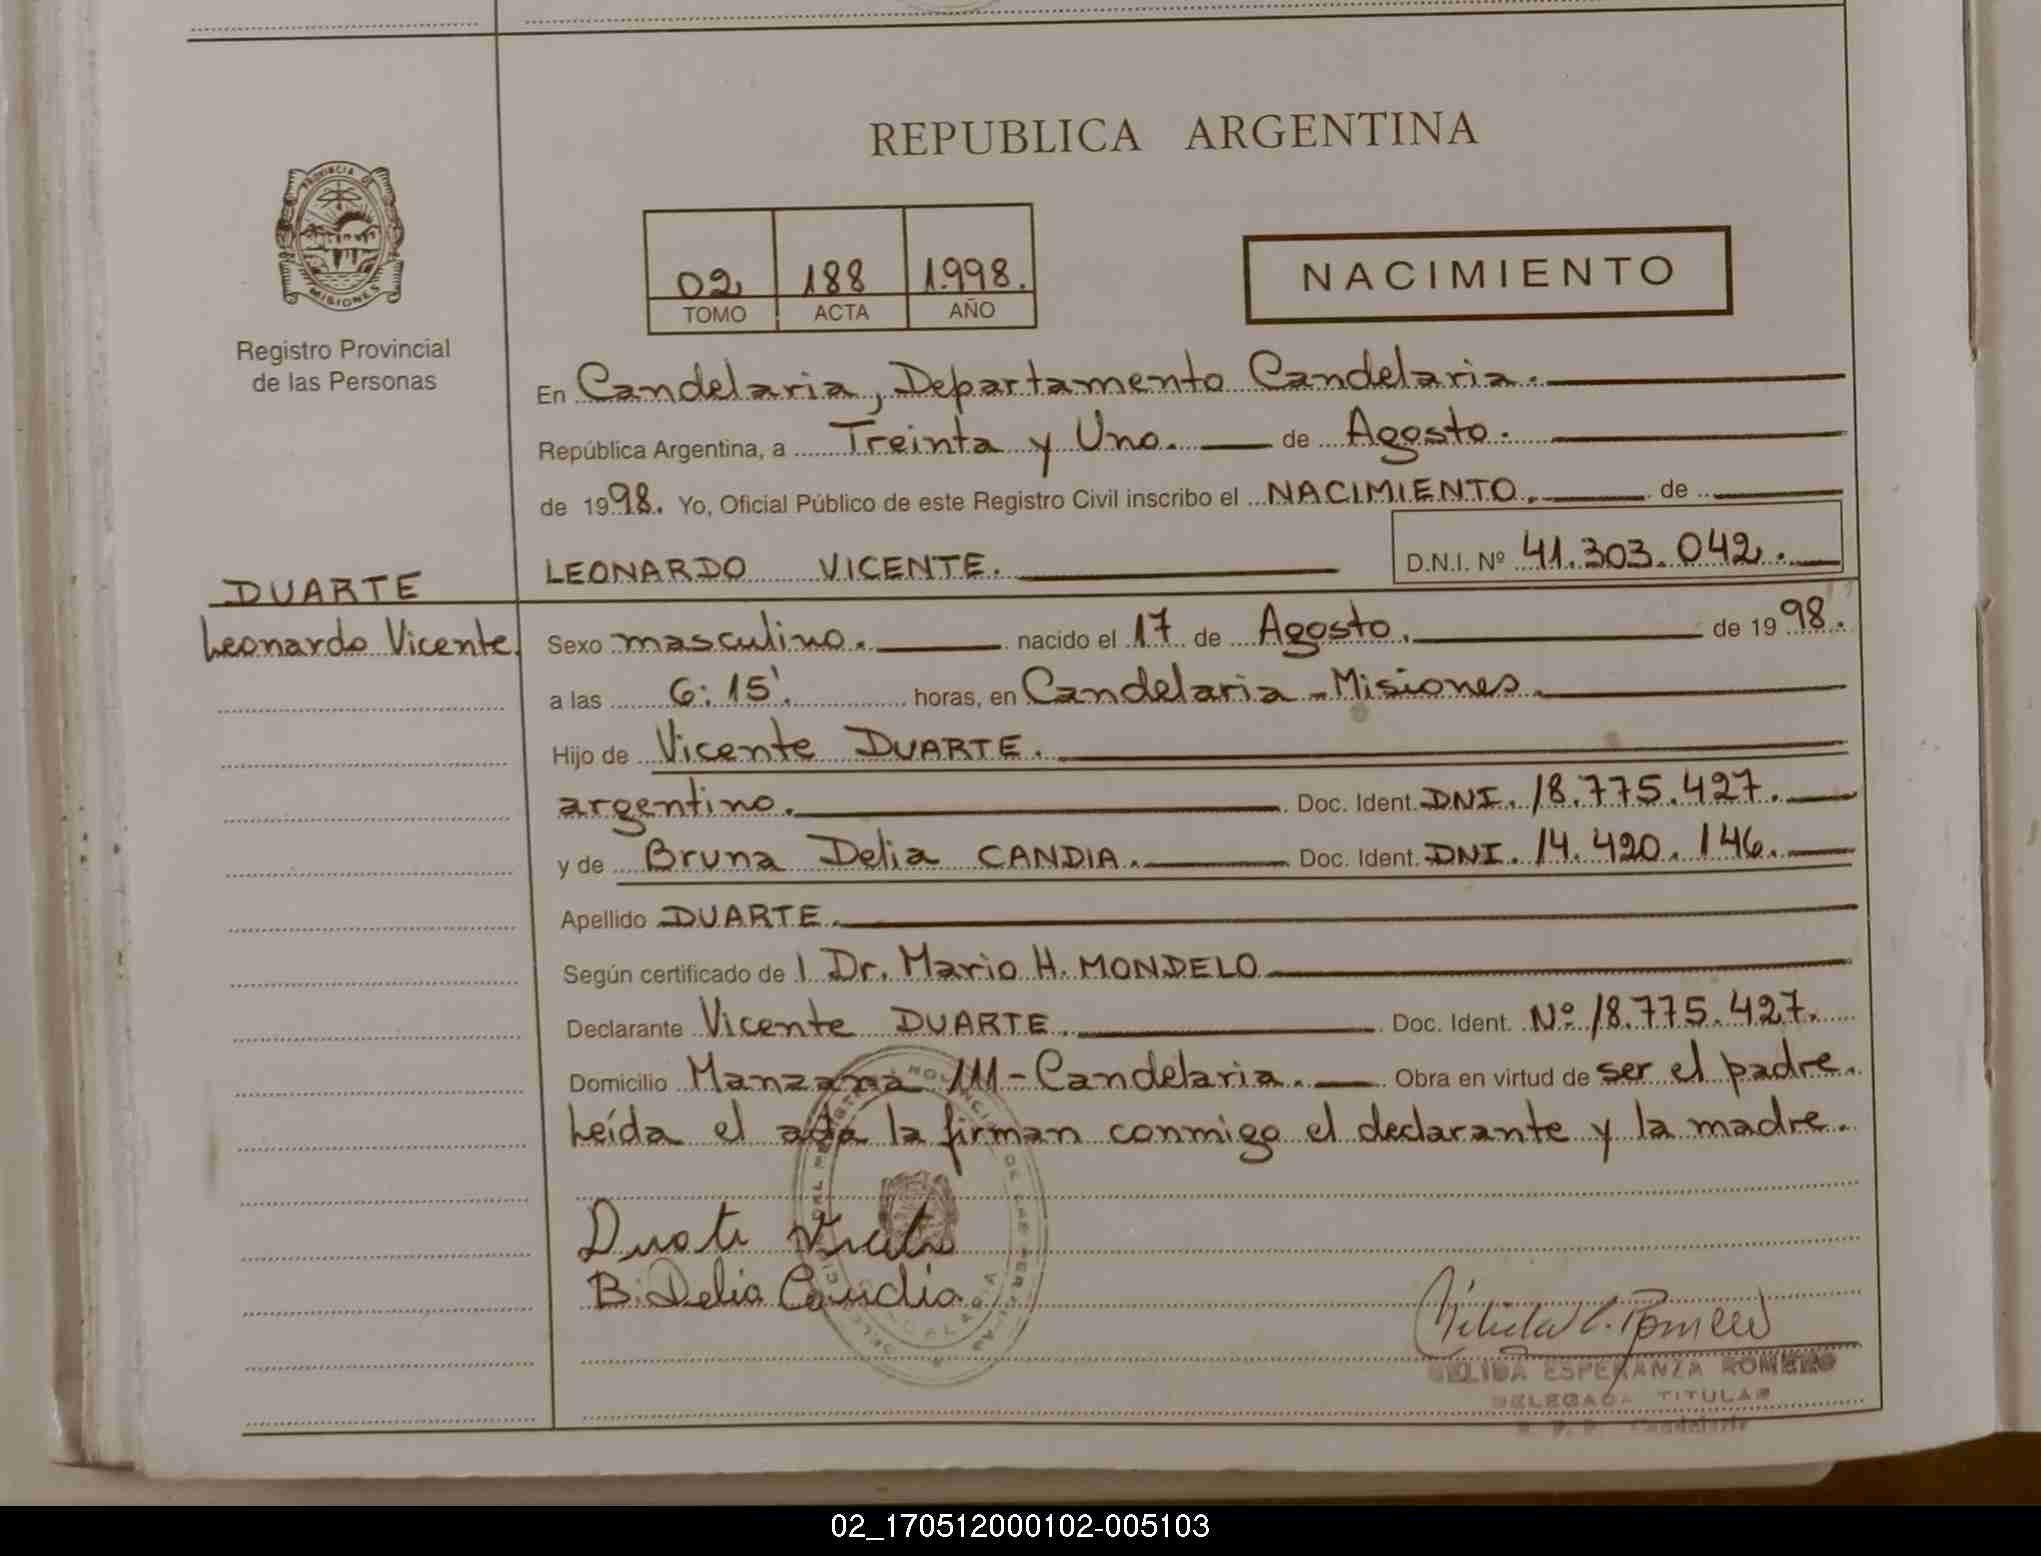 REPUBLICA ARGENTINA
PROVINCIA DE
MISIONES
Registro Provincial
de las Personas
02 188 1.998.
TOMO ACTA AÑO
NACIMIENTO
En Candelaria, Departamento Candelaria.
República Argentina, a Treinta y Uno. de Agosto.
de 1998. Yo, Oficial Público de este Registro Civil inscribo el NACIMIENTO. de
LEONARDO VICENTE. D.N.I. Nº 41.303.042.
DUARTE
Leonardo Vicente.
Sexo masculino. nacido el 17 de Agosto. de 1998.
a las 6:15'. horas, en Candelaria - Misiones.
Hijo de Vicente DUARTE.
argentino. Doc. Ident. DNI. 18.775.427.
y de Bruna Delia CANDIA. Doc. Ident. DNI. 14.420.146.
Apellido DUARTE.
Según certificado de l Dr. Mario H. MONDELO
Declarante Vicente DUARTE. Doc. Ident. Nº 18.775.427.
Domicilio Manzana III - Candelaria. Obra en virtud de ser el padre.
Leída el acta la firman conmigo el declarante y la madre.
Duarte Vicente
B. Delia Candia
NELIDA ESPERANZA ROMERO
DELEGADA TITULAR
R. P. P. Candelaria
02_170512000102-005103